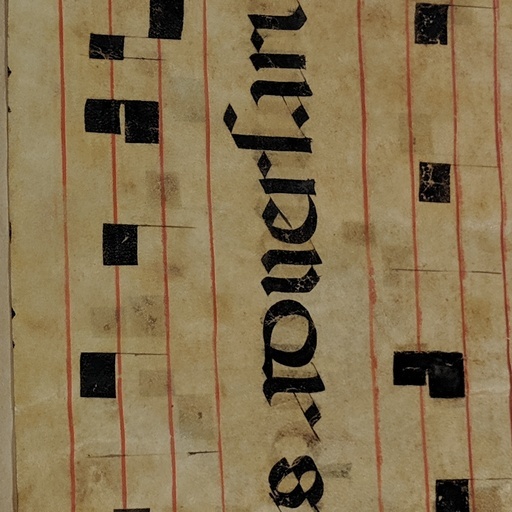 s aduersari